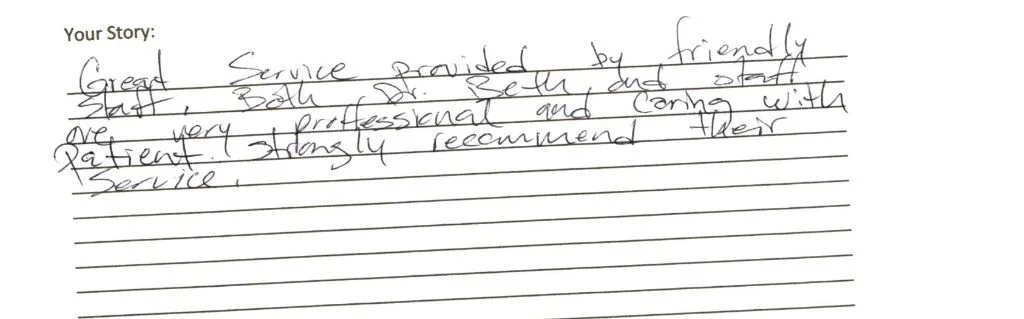 Your Story:
Great Service provided by friendly
Staff. Both Dr. Beth and staff
are very proffessional and Caring with
patient. I strongly recommend their
Service.